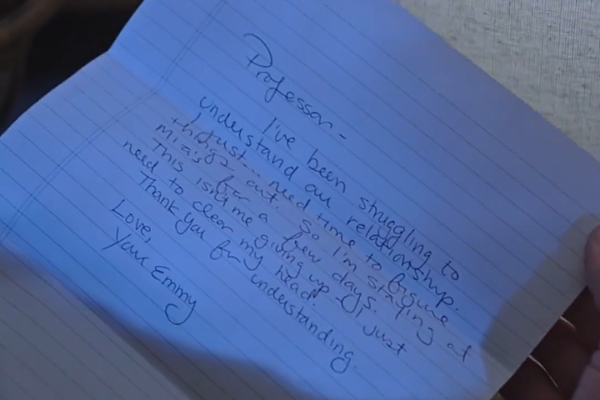 Professor-
I've been struggling to
understand our relationship.
I just... need time to figure
things out. So I'm staying at
Mia's for a few days.
This isn't me giving up - I just
need to clear my head.
Thank you for understanding.
Love,
Your Emmy